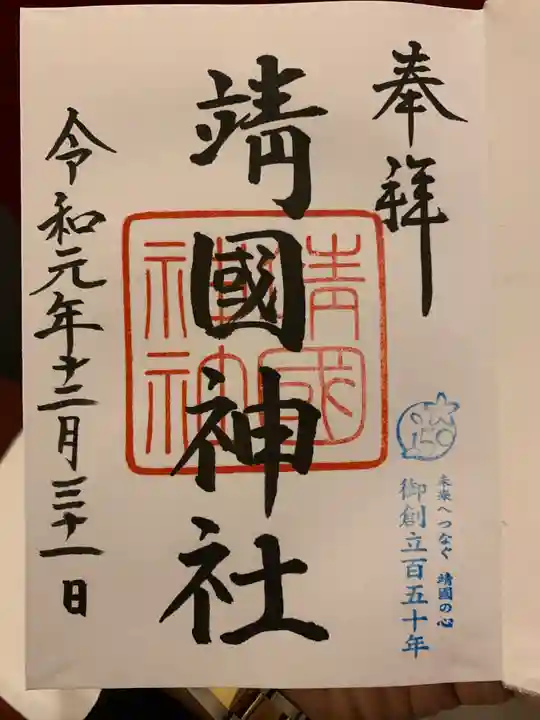 奉拝
靖國神社
靖國神社
150
未来へつなぐ 靖國の心
御創立百五十年
令和元年十二月三十一日